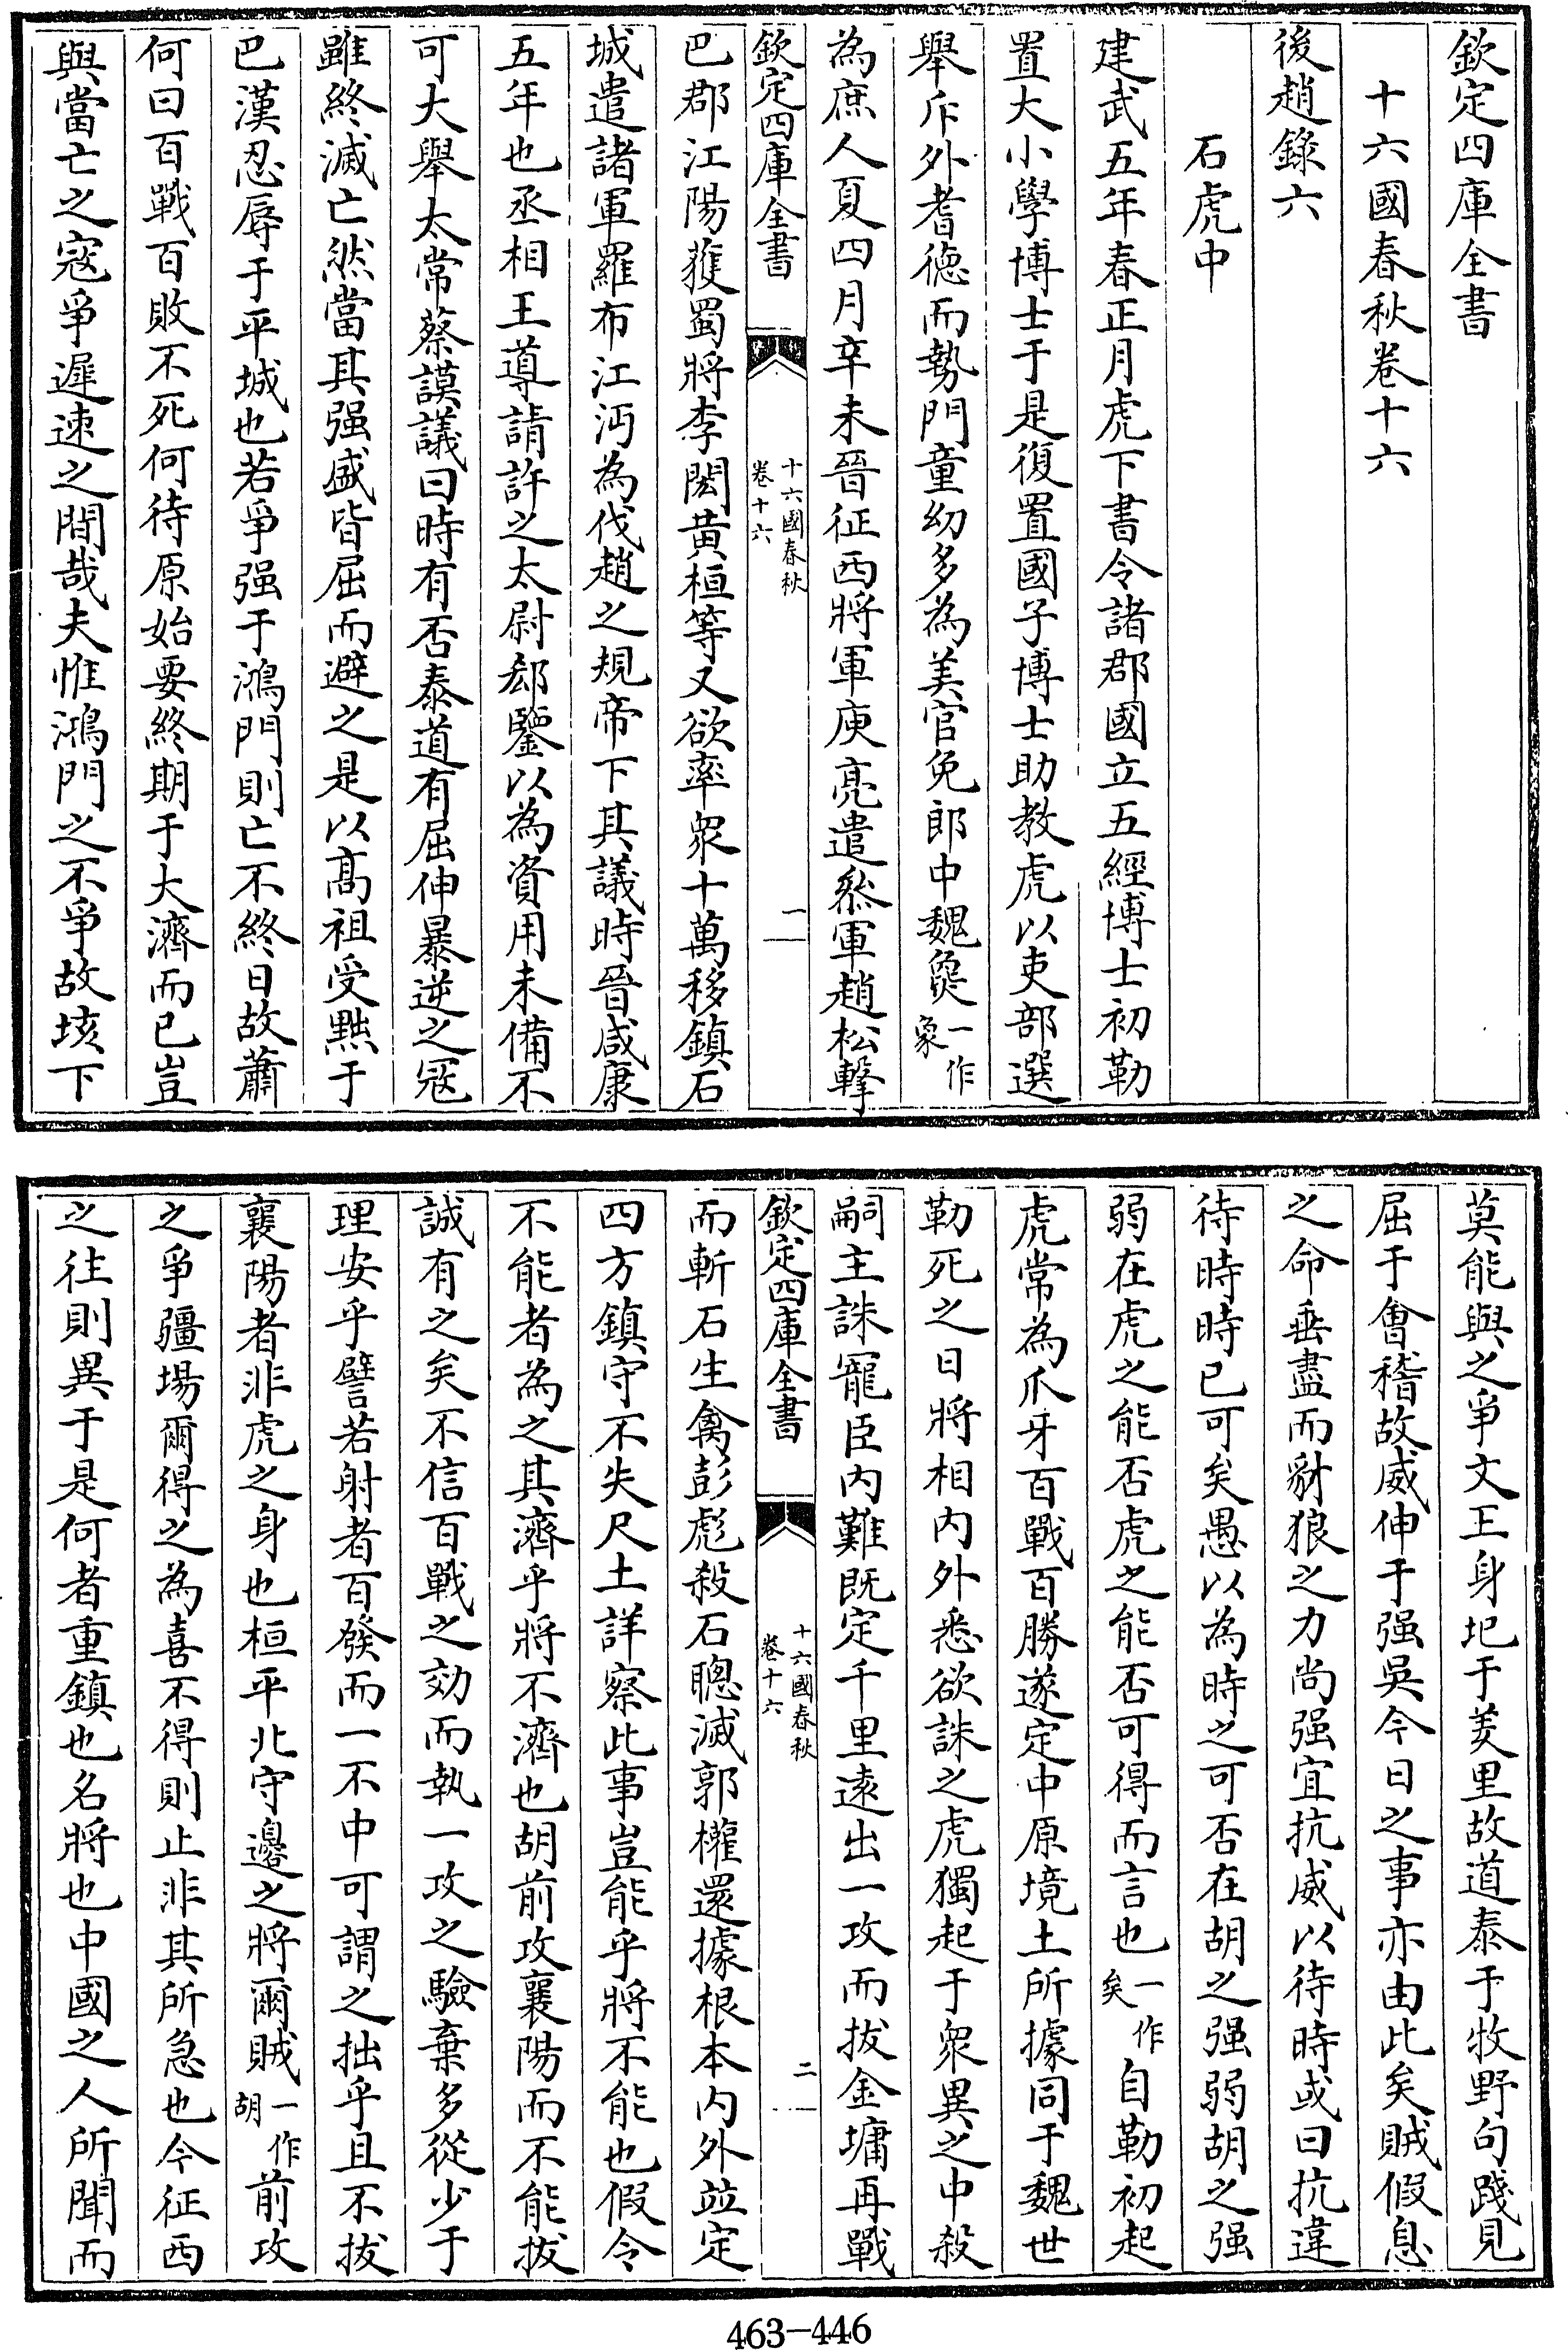 欽定四庫全書
十六國春秋卷十六
後趙錄六
石虎中
建武五年春正月虎下書令諸郡國立五經博士初勒
置大小學博士于是復置國子博士助教虎以吏部選
舉斥外耆德而勢門童幼多為美官免郎中魏㚟一作象
為庶人夏四月辛未晉征西將軍庾亮遣叅軍趙松擊
欽定四庫全書
十六國春秋
卷十六
一
巴郡江陽獲蜀將李閎黃桓等又欲率衆十萬移鎮石
城遣諸軍羅布江沔為伐趙之規帝下其議時晉咸康
五年也丞相王導請許之太尉郄鑒以為資用未備不
可大舉太常蔡謨議曰時有否泰道有屈伸暴逆之寇
雖終滅亡然當其强盛皆屈而避之是以髙祖受黜于
巴漢忍辱于平城也若爭强于鴻門則亡不終日故蕭
何曰百戰百敗不死何待原始要終期于大濟而已豈
與當亡之寇爭遲速之間哉夫惟鴻門之不爭故垓下
莫能與之爭文王身圯于羑里故道泰于牧野句踐見
屈于會稽故威伸于强吳今日之事亦由此矣賊假息
之命垂盡而豺狼之力尚强宜抗威以待時或曰抗違
待時時已可矣愚以為時之可否在胡之强弱胡之强
弱在虎之能否虎之能否可得而言也一作矣自勒初起
虎常為爪牙百戰百勝遂定中原境土所據同于魏世
勒死之日將相內外悉欲誅之虎獨起于衆異之中殺
嗣主誅寵臣內難既定千里遠出一攻而拔金墉再戰
欽定四庫全書
十六國春秋
卷十六
二
而斬石生禽彭彪殺石聰滅郭權還據根本內外竝定
四方鎮守不失尺土詳察此事豈能乎將不能也假令
不能者為之其濟乎將不濟也胡前攻襄陽而不能拔
誠有之矣不信百戰之効而執一攻之驗棄多從少于
理安乎譬若射者百發而一不中可謂之拙乎且不拔
襄陽者非虎之身也桓平北守邊之將爾賊一作胡前攻
之爭疆場爾得之為喜不得則止非其所急也今征西
之往則異于是何者重鎮也名將也中國之人所聞而
463-446